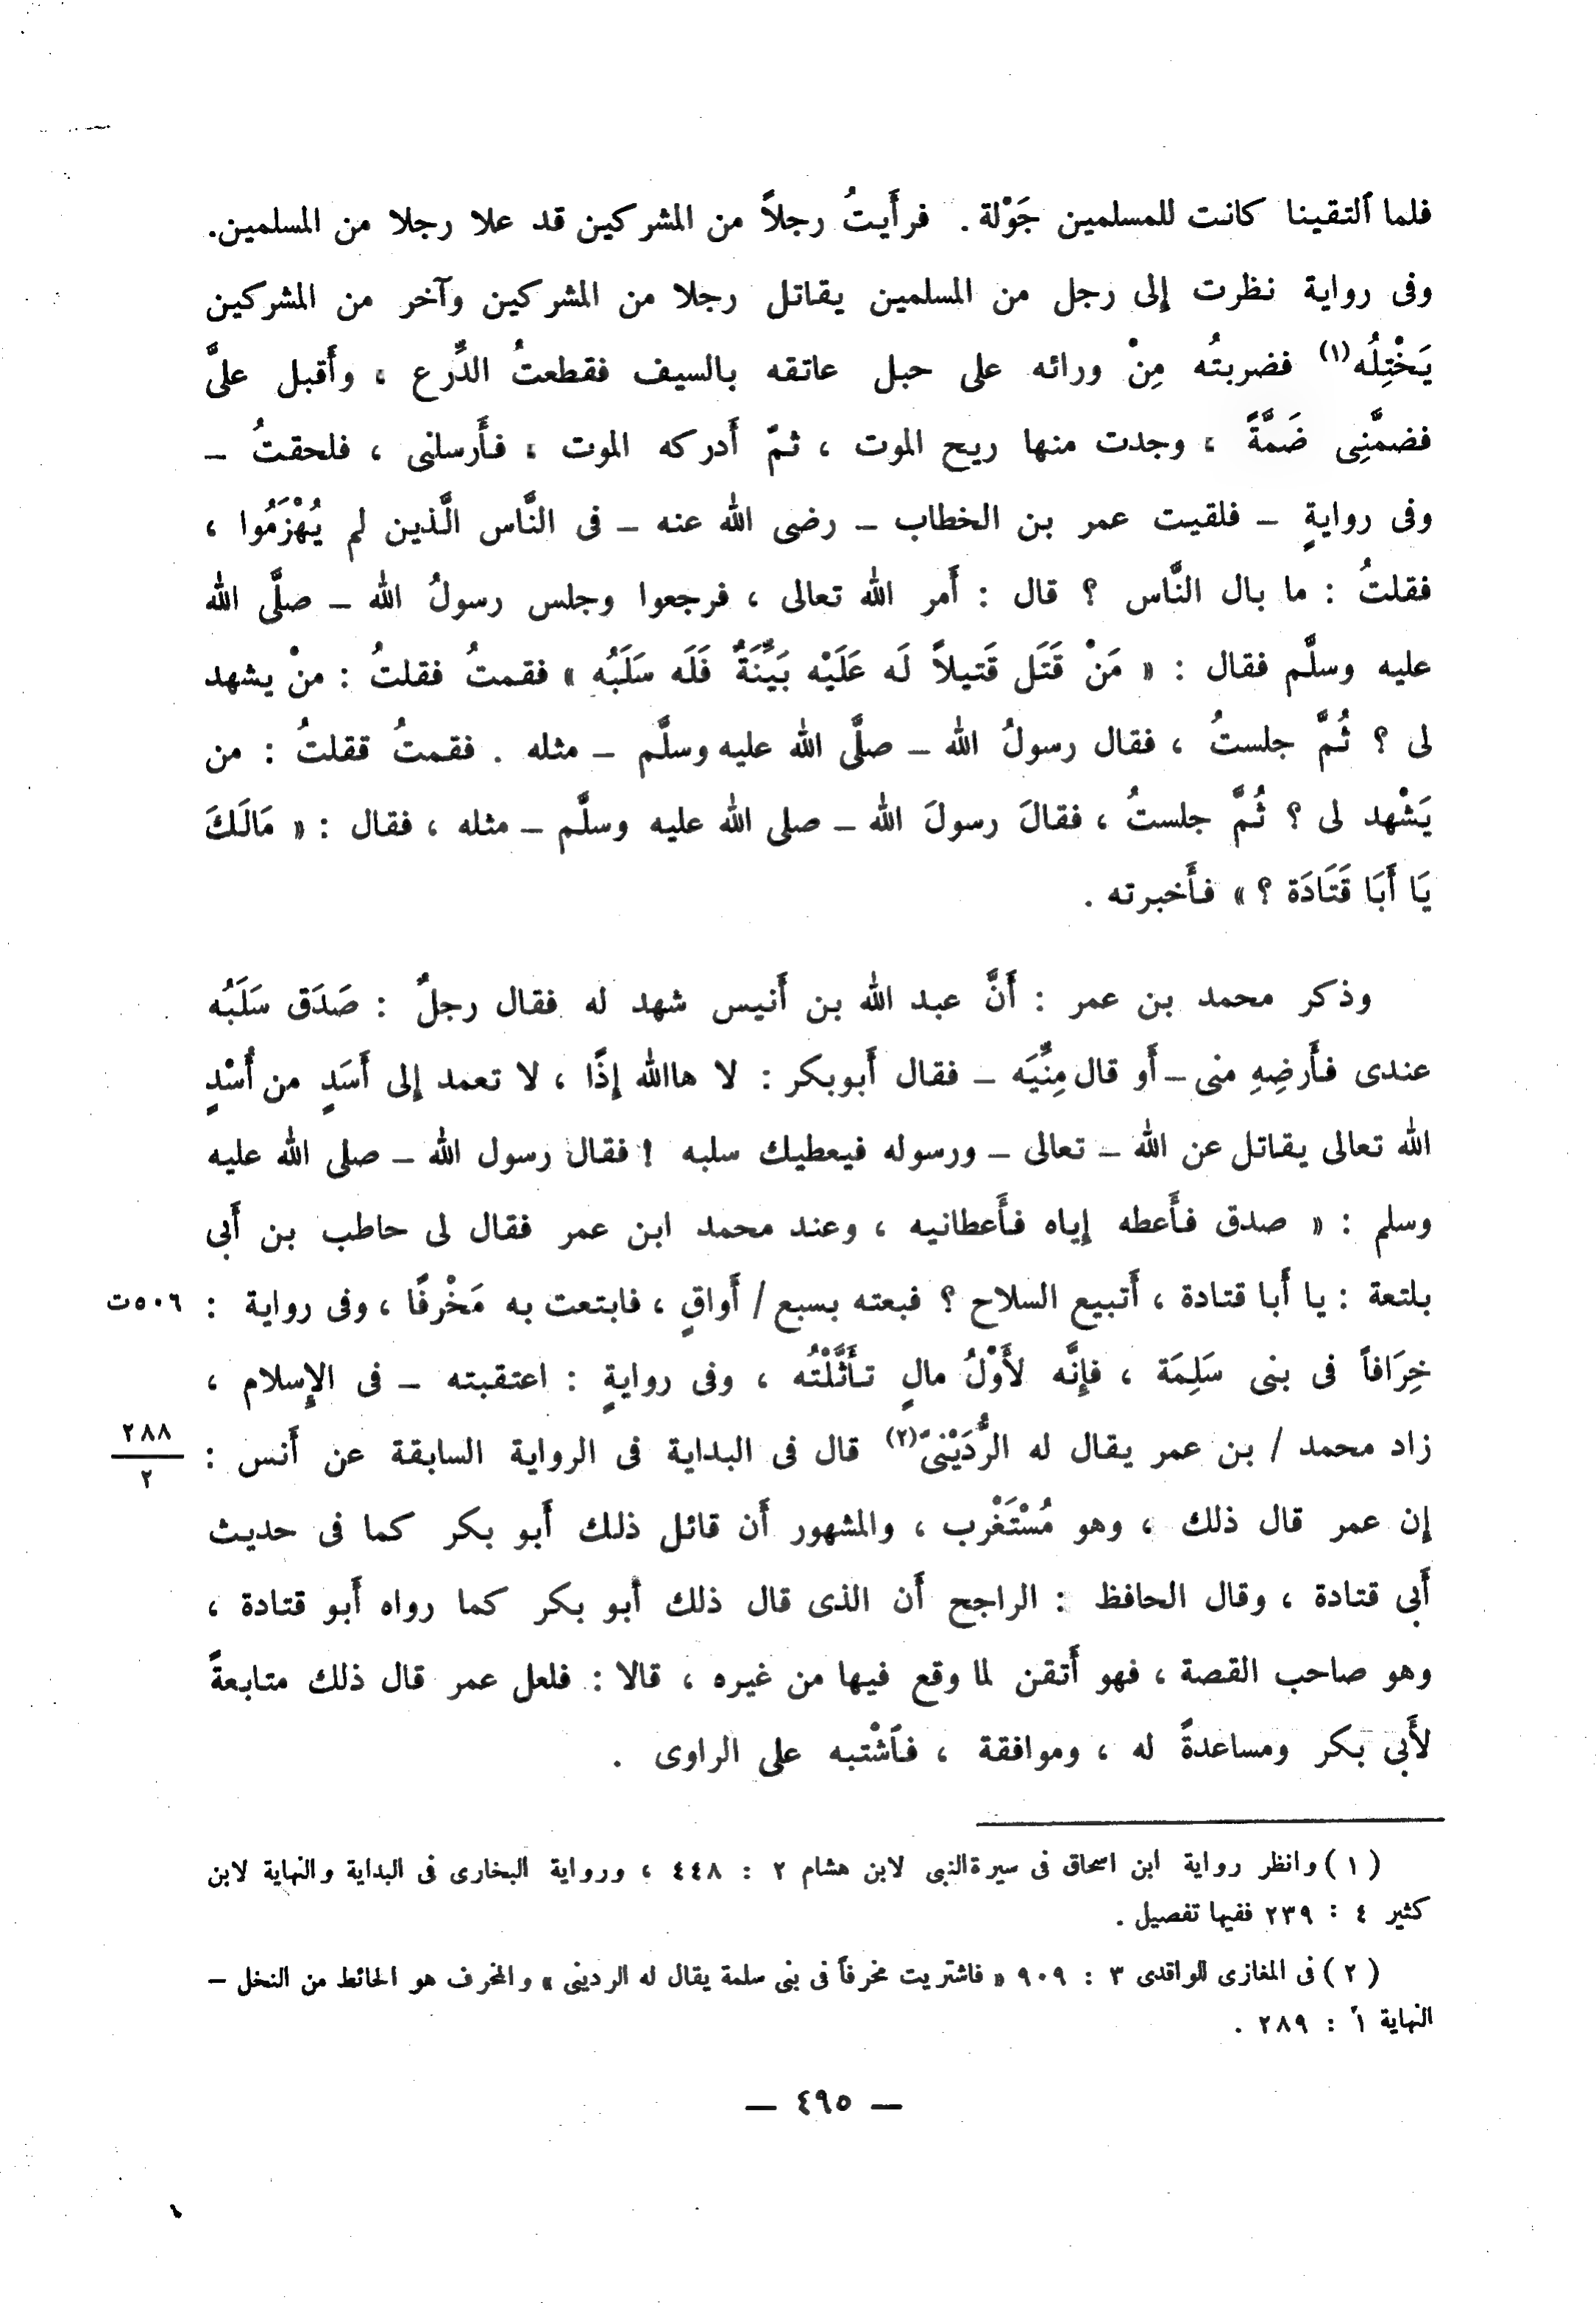 فلما ٱلتقينا كانت للمسلمين جَوْلة. فرأَيتُ رجلاً من المشركين قد علا رجلا من المسلمين.
وفى رواية نظرت إلى رجل من المسلمين يقاتل رجلا من المشركين وآخر من المشركين
يَخْتِلُه(١) فضربتُه مِنْ ورائه على حبل عاتقه بالسيف فقطعتُ الدِّرع ، وأَقبل علىَّ
فضمَّنِى ضَمَّةً ، وجدت منها ريح الموت ، ثمّ أَدركه الموت ، فأَرسلنى ، فلحقتُ –
وفى روايةٍ – فلقيت عمر بن الخطاب – رضى الله عنه – فى النَّاس الَّذين لم يُهْزَمُوا ،
فقلتُ : ما بال النَّاس ؟ قال : أَمر الله تعالى ، فرجعوا وجلس رسولُ الله – صلَّى الله
عليه وسلَّم فقال : « مَنْ قَتَل قَتيلاً لَه عَلَيْه بَيِّنَةٌ فَلَه سَلَبُه » فقمتُ فقلتُ : منْ يشهد
لى ؟ ثُمَّ جلستُ ، فقال رسولُ الله – صلَّى الله عليه وسلَّم – مثله . فقمتُ فقلتُ : من
يَشْهد لى ؟ ثُمَّ جلستُ ، فقالَ رسولَ الله – صلى الله عليه وسلَّم – مثله ، فقال : « مَالَكَ
يَا أَبَا قَتَادَة ؟ » فأَخبرته .
وذكر محمد بن عمر : أَنَّ عبد الله بن أَنيس شهد له فقال رجلٌ : صَدَق سَلَبُه
عندى فأَرضِهِ منى – أَو قال مِنِّيَه – فقال أَبوبكر : لا هاالله إِذًا ، لا تعمد إلى أَسَدٍ من أُسْدٍ
الله تعالى يقاتل عن الله – تعالى – ورسوله فيعطيك سلبه ! فقال رسول الله – صلى الله عليه
وسلم : « صدق فأَعطه إياه فأَعطانيه ، وعند محمد ابن عمر فقال لى حاطب بن أَبى
بلتعة : يا أَبا قتادة ، أَتبيع السلاح ؟ فبعته بسبع / أَواقٍ ، فابتعت به مَخْرفًا ، وفى رواية : ٥٠٦ت
خِرَافاً فى بنى سَلِمَة ، فإِنَّه لأَوّلُ مالٍ تأَثَّلْتُه ، وفى روايةٍ : اعتقبته – فى الإِسلام ،
زاد محمد / بن عمر يقال له الرُّدَيْنىّ(٢) قال فى البداية فى الرواية السابقة عن أَنس : ٢٨٨
٢
إن عمر قال ذلك ، وهو مُسْتَغْرب ، والمشهور أَن قائل ذلك أَبو بكر كما فى حديث
أَبى قتادة ، وقال الحافظ : الراجح أَن الذى قال ذلك أَبو بكر كما رواه أَبو قتادة ،
وهو صاحب القصة ، فهو أَتقن لما وقع فيها من غيره ، قالا : فلعل عمر قال ذلك متابعةً
لأَبى بكر ومساعدةً له ، وموافقة ، فٱشْتبه على الراوى .
( ١ ) وانظر رواية ابن اسحاق فى سيرة النبى لابن هشام ٢ : ٤٤٨ ، ورواية البخارى فى البداية والنهاية لابن
كثير ٤ : ٢٣٩ ففيها تفصيل .
( ٢ ) فى المغازى للواقدى ٣ : ٩٠٩ « فاشتريت مخرفاً فى بنى سلمة يقال له الردينى » والمخرف هو الحائط من النخل –
النهاية ١ : ٢٨٩ .
— ٤٩٥ —